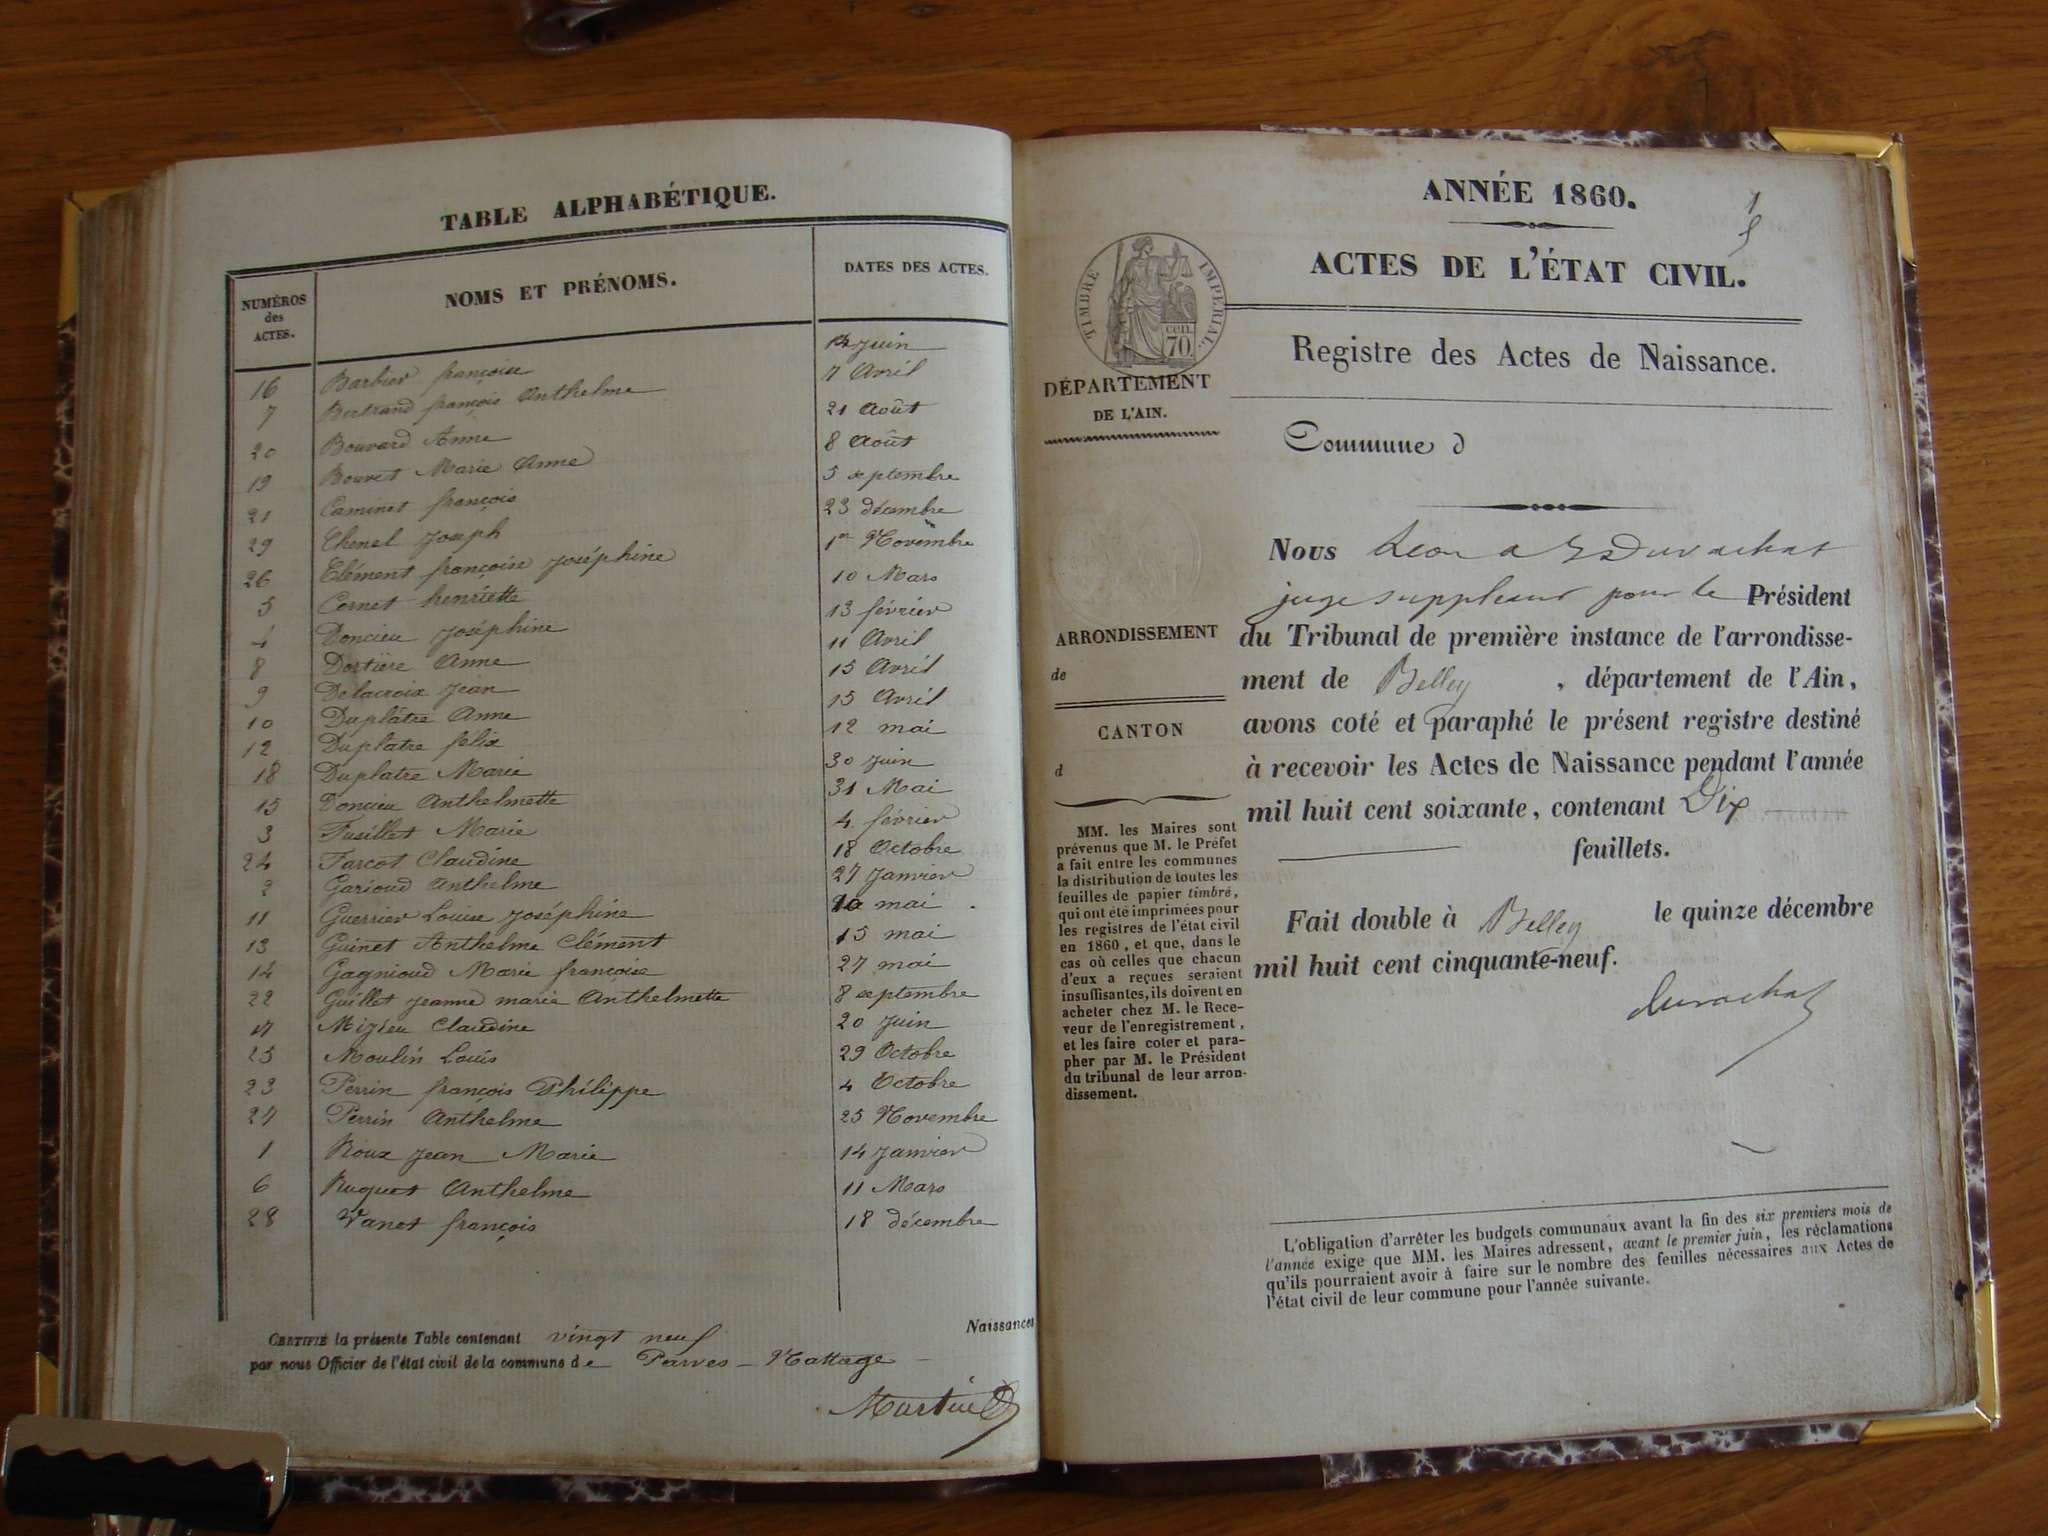 TABLE ALPHABÉTIQUE.
NUMÉROS des ACTES.
NOMS ET PRÉNOMS.
DATES DES ACTES.
16 Barbier françoise 14 Juin
7 Bertrand françois Anthelme 7 Avril
20 Bouvard Anne 21 Août
19 Bouvet Marie Anne 8 Août
21 Caminet françois 5 septembre
29 Chenel Joseph 23 décembre
26 Clément françoise Joséphine 1er Novembre
5 Cornet henriette 10 Mars
4 Doncieu Joséphine 13 février
8 Dortière Anne 11 Avril
9 Delacroix Jean 15 Avril
10 Duplâtre Anne 15 Avril
12 Duplatre félix 12 mai
18 Duplatre Marie 30 Juin
15 Doncieu Anthelmette 31 Mai
3 Fusillet Marie 4 février
24 Farcot Claudine 18 Octobre
2 Garioud Anthelme 27 Janvier
11 Guerrier Louise Joséphine 10 mai
13 Guinet Anthelme Clément 15 mai
14 Gagnioud Marie françoise 27 mai
22 Guillet Jeanne marie Anthelmette 8 septembre
17 Mizieu Claudine 20 Juin
25 Moulin Louis 29 Octobre
23 Perrin françois Philippe 4 Octobre
27 Perrin Anthelme 25 Novembre
1 Roux Jean Marie 14 Janvier
6 Ruguet Anthelme 11 Mars
28 Vanet françois 18 décembre
CERTIFIÉ la présente Table contenant vingt neuf Naissances
par nous Officier de l'état civil de la commune de Parves - Nattage
Martin
1
ANNÉE 1860.
ACTES DE L'ÉTAT CIVIL.
TIMBRE IMPÉRIAL
cen. 70
Registre des Actes de Naissance.
DÉPARTEMENT
DE L'AIN.
Commune d
ARRONDISSEMENT
de
CANTON
d
MM. les Maires sont
prévenus que M. le Préfet
a fait entre les communes
la distribution de toutes les
feuilles de papier timbré,
qui ont été imprimées pour
les registres de l'état civil
en 1860, et que, dans le
cas où celles que chacun
d'eux a reçues seraient
insuffisantes, ils doivent en
acheter chez M. le Rece-
veur de l'enregistrement,
et les faire coter et para-
pher par M. le Président
du tribunal de leur arron-
dissement.
Nous Duvachat
juge suppléant pour le Président
du Tribunal de première instance de l'arrondisse-
ment de Belley, département de l'Ain,
avons coté et paraphé le présent registre destiné
à recevoir les Actes de Naissance pendant l'année
mil huit cent soixante, contenant Dix
feuillets.
Fait double à Belley le quinze décembre
mil huit cent cinquante-neuf.
Durachat
L'obligation d'arrêter les budgets communaux avant la fin des six premiers mois de
l'année exige que MM. les Maires adressent, avant le premier juin, les réclamations
qu'ils pourraient avoir à faire sur le nombre des feuilles nécessaires aux Actes de
l'état civil de leur commune pour l'année suivante.